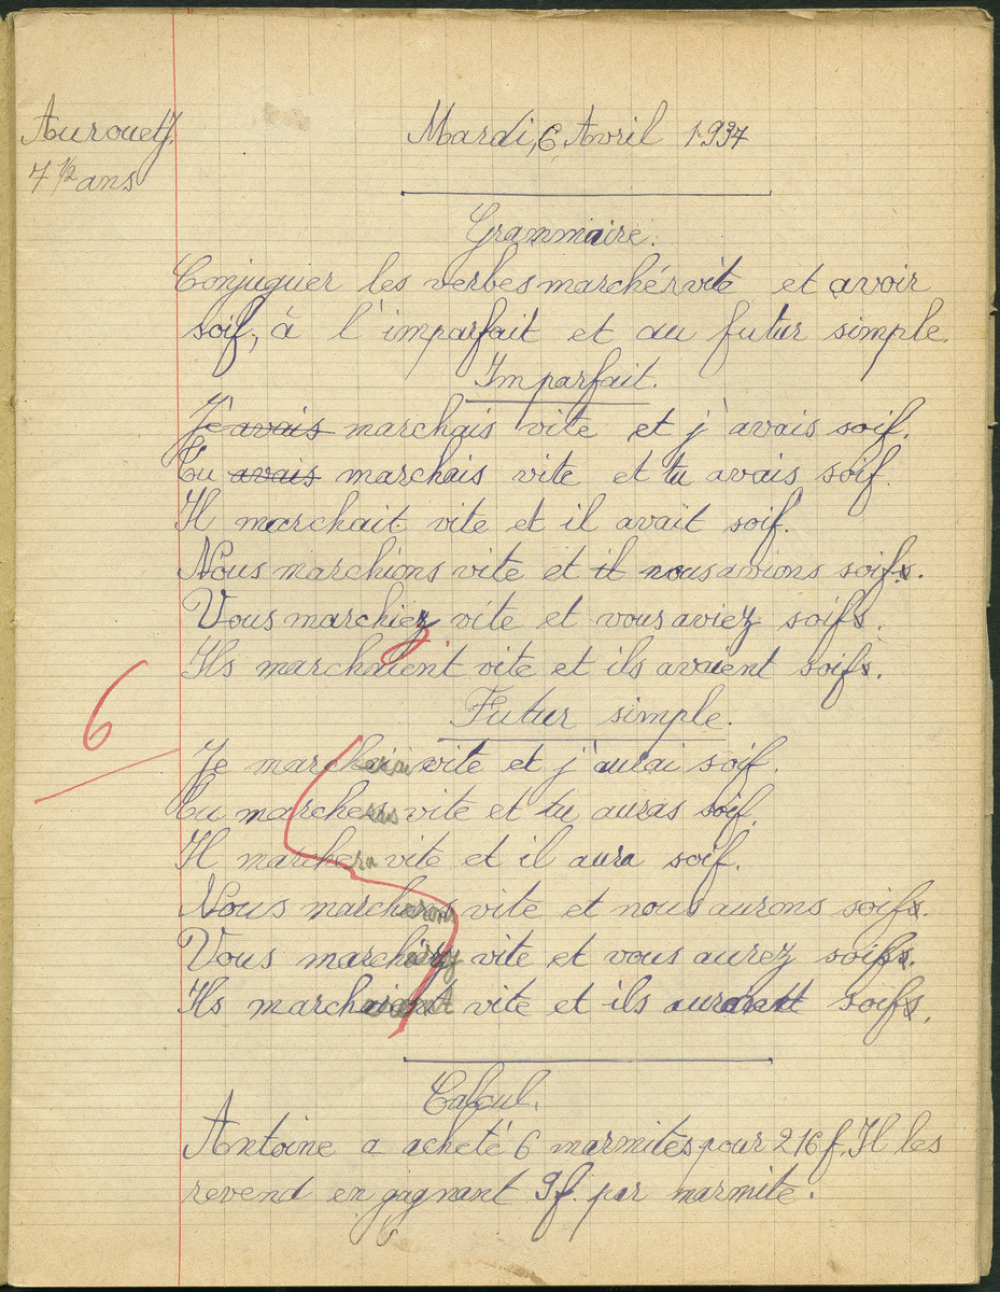 Aurouety.
7 1/2 ans
Mardi, 6 Avril 1937
Grammaire.
Conjuguer les verbes marchér vite et avoir
soif, à l'imparfait et au futur simple.
Imparfait.
Je avais marchais vite et j'avais soif.
Tu avais marchais vite et tu avais soif.
Il marchait vite et il avait soif.
Nous marchions vite et il nous avions soifs.
Vous marchiez vite et vous aviez soifs.
Ils marchaient vite et ils avaient soifs.
6
Futur simple.
Je marcherai vite et j'aurai soif.
Tu marcheras vite et tu auras soif.
Il marchera vite et il aura soif.
Nous marcherons vite et nous aurons soifs.
Vous marcherez vite et vous aurez soifs.
Ils marcheront vite et ils auront soifs.
Calcul.
Antoine a acheté 6 marmites pour 216 f. Il les
revend en gagnant 9 f. par marmite.